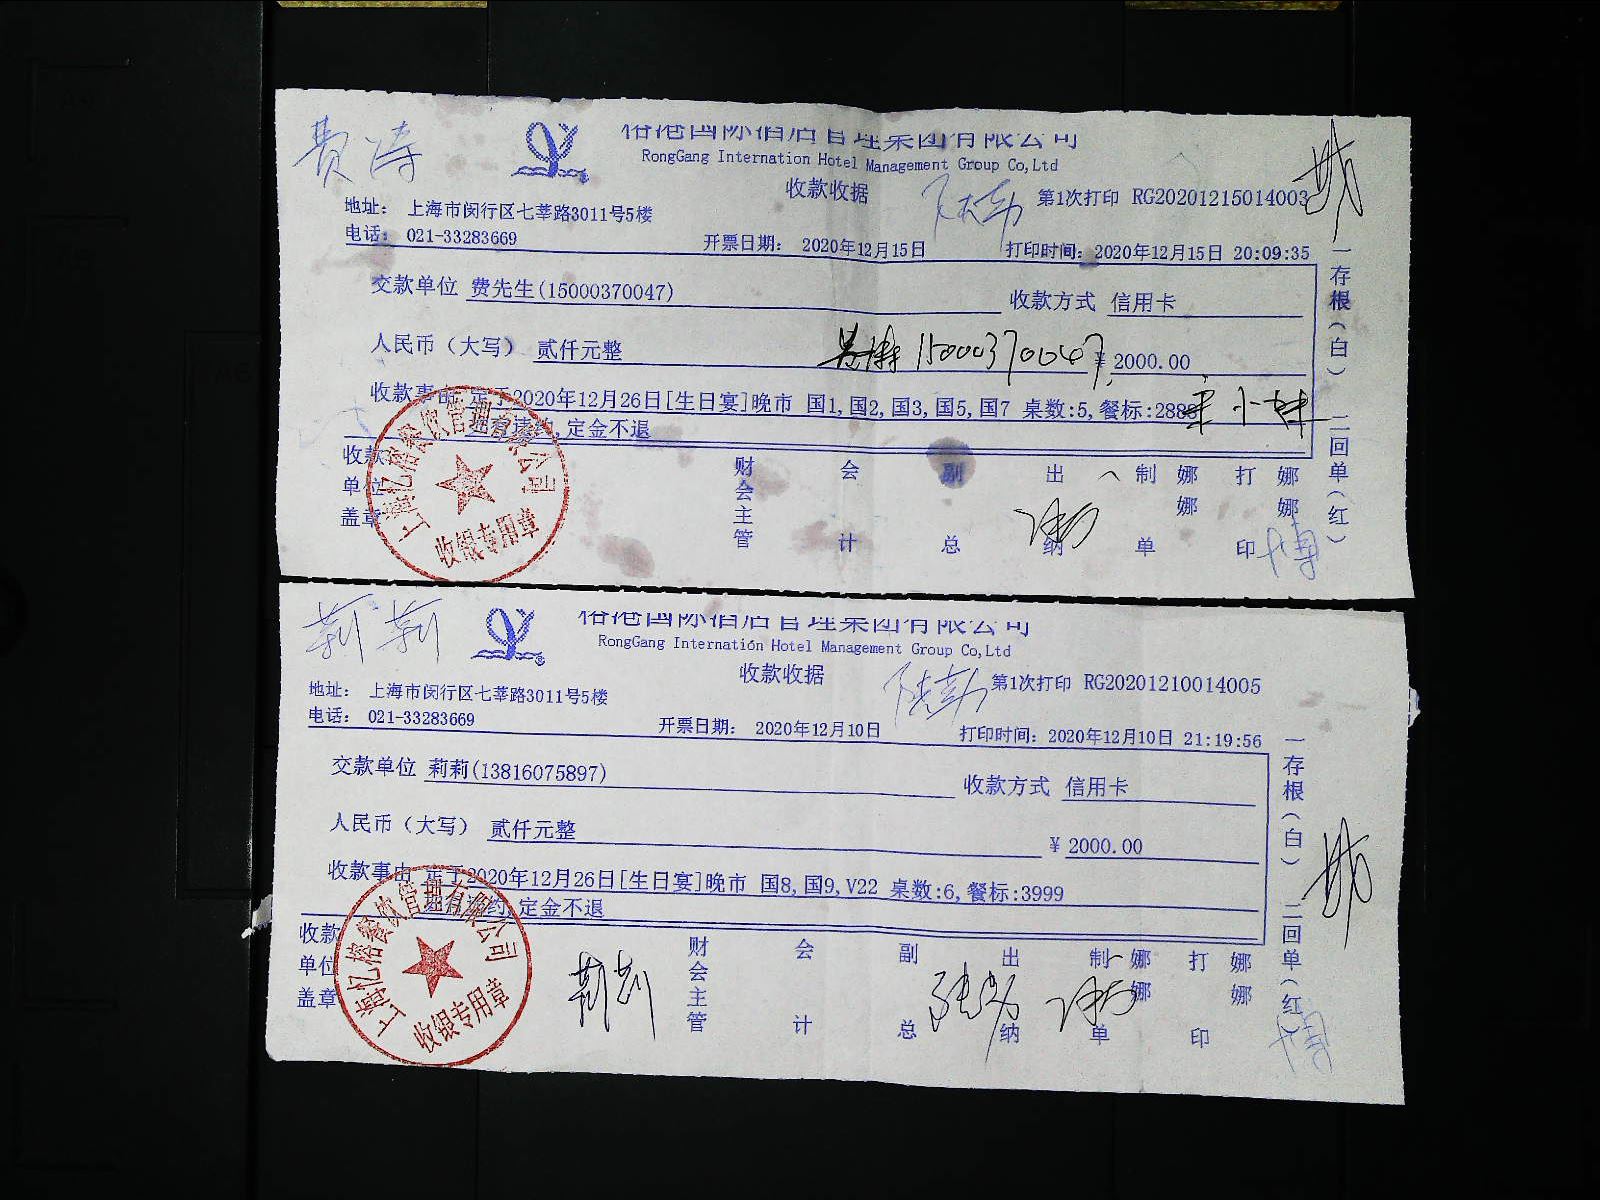 费涛
榕港国际酒店管理集团有限公司
RongGang Internation Hotel Management Group Co,Ltd
收款收据
第1次打印 RG20201215014003
地址： 上海市闵行区七莘路3011号5楼
电话： 021-33283669 开票日期： 2020年12月15日 打印时间：2020年12月15日 20:09:35
交款单位 费先生(15000370047) 收款方式 信用卡
人民币（大写） 贰仟元整 15000370047 ¥ 2000.00
收款事由 定于2020年12月26日[生日宴]晚市 国1,国2,国3,国5,国7 桌数:5,餐标:2888
定金不退
收款单位盖章 财会主管 会计 副总 出纳 制单 娜娜 打印 娜娜
上海亿榕餐饮管理有限公司
收银专用章
一存根（白） 二回单（红）
莉莉
榕港国际酒店管理集团有限公司
RongGang Internation Hotel Management Group Co,Ltd
收款收据
第1次打印 RG20201210014005
地址： 上海市闵行区七莘路3011号5楼
电话： 021-33283669 开票日期： 2020年12月10日 打印时间：2020年12月10日 21:19:56
交款单位 莉莉(13816075897) 收款方式 信用卡
人民币（大写） 贰仟元整 ¥ 2000.00
收款事由 定于2020年12月26日[生日宴]晚市 国8,国9,V22 桌数:6,餐标:3999
定金不退
收款单位盖章 莉莉 财会主管 会计 副总 出纳 制单 娜娜 打印 娜娜
上海亿榕餐饮管理有限公司
收银专用章
一存根（白） 二回单（红）